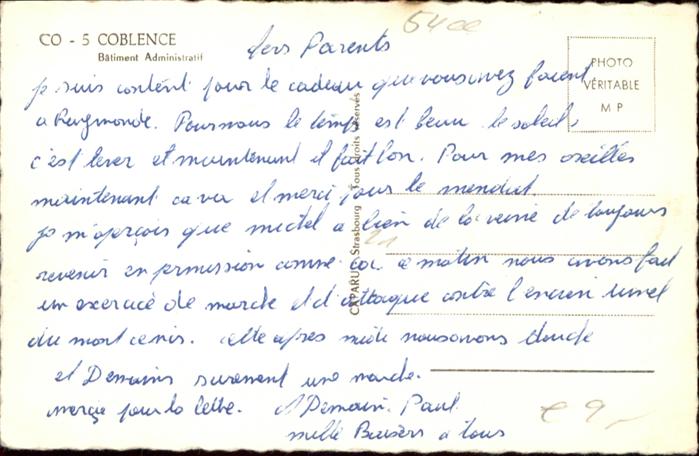 54cc
CO - 5 COBLENCE
Bâtiment Administratif
PHOTO
VÉRITABLE
M P
CAPARUL Strasbourg Tous droits réservés
Parents
je suis content pour le cadeau que vous avez
a Raymonde. Pour nous le temps est beau le soleil
c'est lever et maintenant il fait bon. Pour mes oreilles
maintenant ca va et merci pour le mendat.
je m'aperçois que michel a bien de la veine de toujours
revenir en permission comme ca. ce matin nous avons fait
un exercice de marche et d'attaque contre l'
du mont cenis. cette apres midi nous avons
et Demain surement une marche.
merçie pour la lettre. A Demain. Paul
mille Baisers a tous
€ 9,-